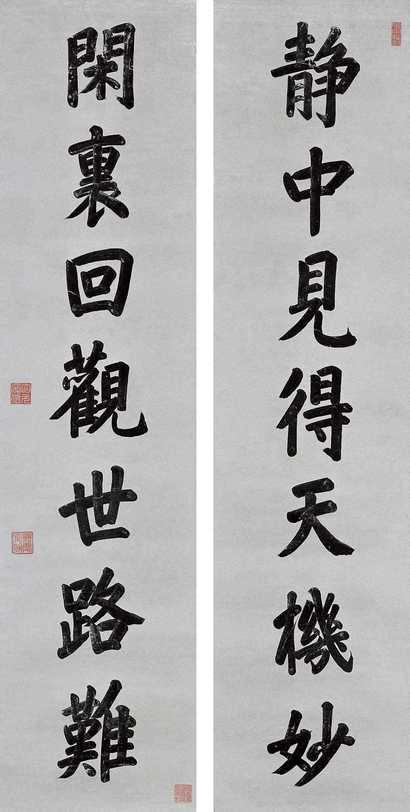 静中見得天機妙
閑裏回觀世路難